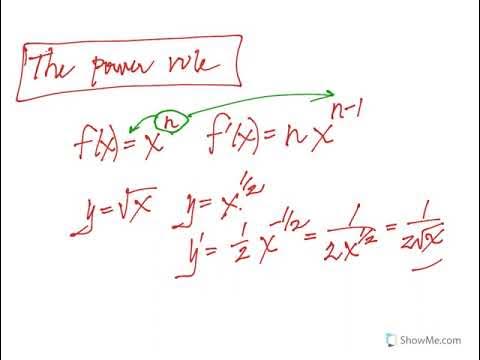 The power rule
f(x) = xⁿ f'(x) = n xⁿ⁻¹
y = √x y = x^1/2
y' = 1/2 x^-1/2 = 1/2x^1/2 = 1/2√x
ShowMe.com